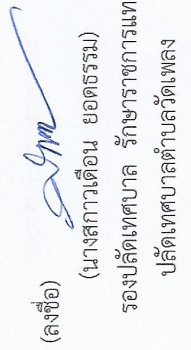 (ลงชื่อ)
(นางสกาวเดือน ยอดธรรม)
รองปลัดเทศบาล รักษาราชการแท
ปลัดเทศบาลตำบลวัดเพลง